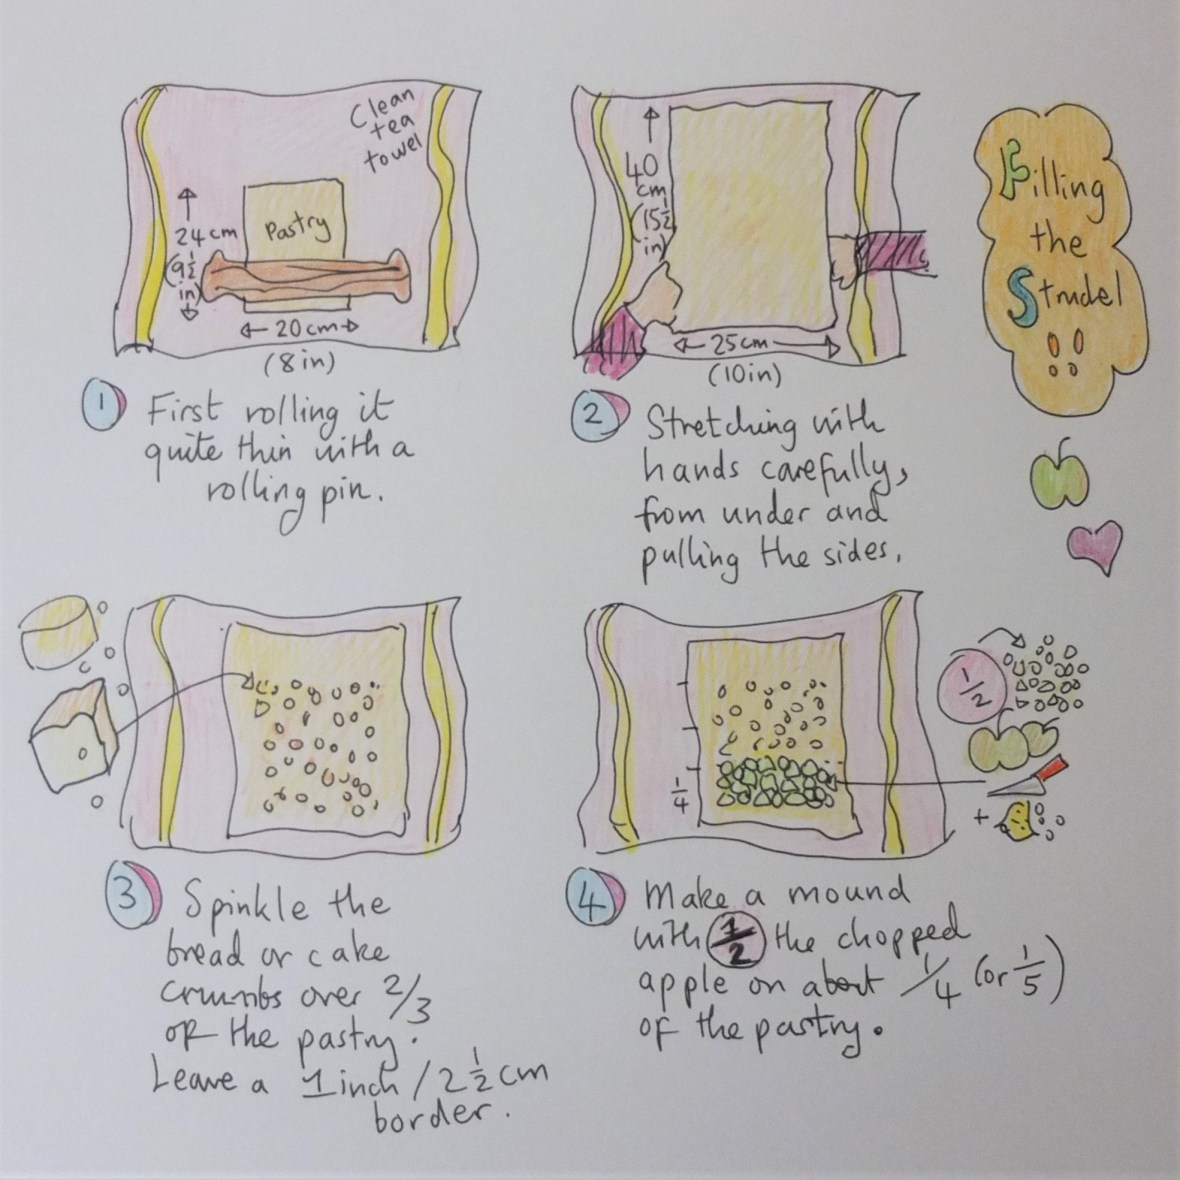 Filling
the
Strudel
!!
Clean
tea
towel
Pastry
24cm
(9½
in)
20cm
(8in)
1 First rolling it
quite thin with a
rolling pin.
40
cm
(15½
in)
25cm
(10in)
2 Stretching with
hands carefully,
from under and
pulling the sides.
3 Spinkle the
bread or cake
crumbs over 2/3
of the pastry.
Leave a 1inch/2½cm
border.
1/4
1/2
+
4 Make a mound
with 1/2 the chopped
apple on about 1/4 (or 1/5)
of the pastry.